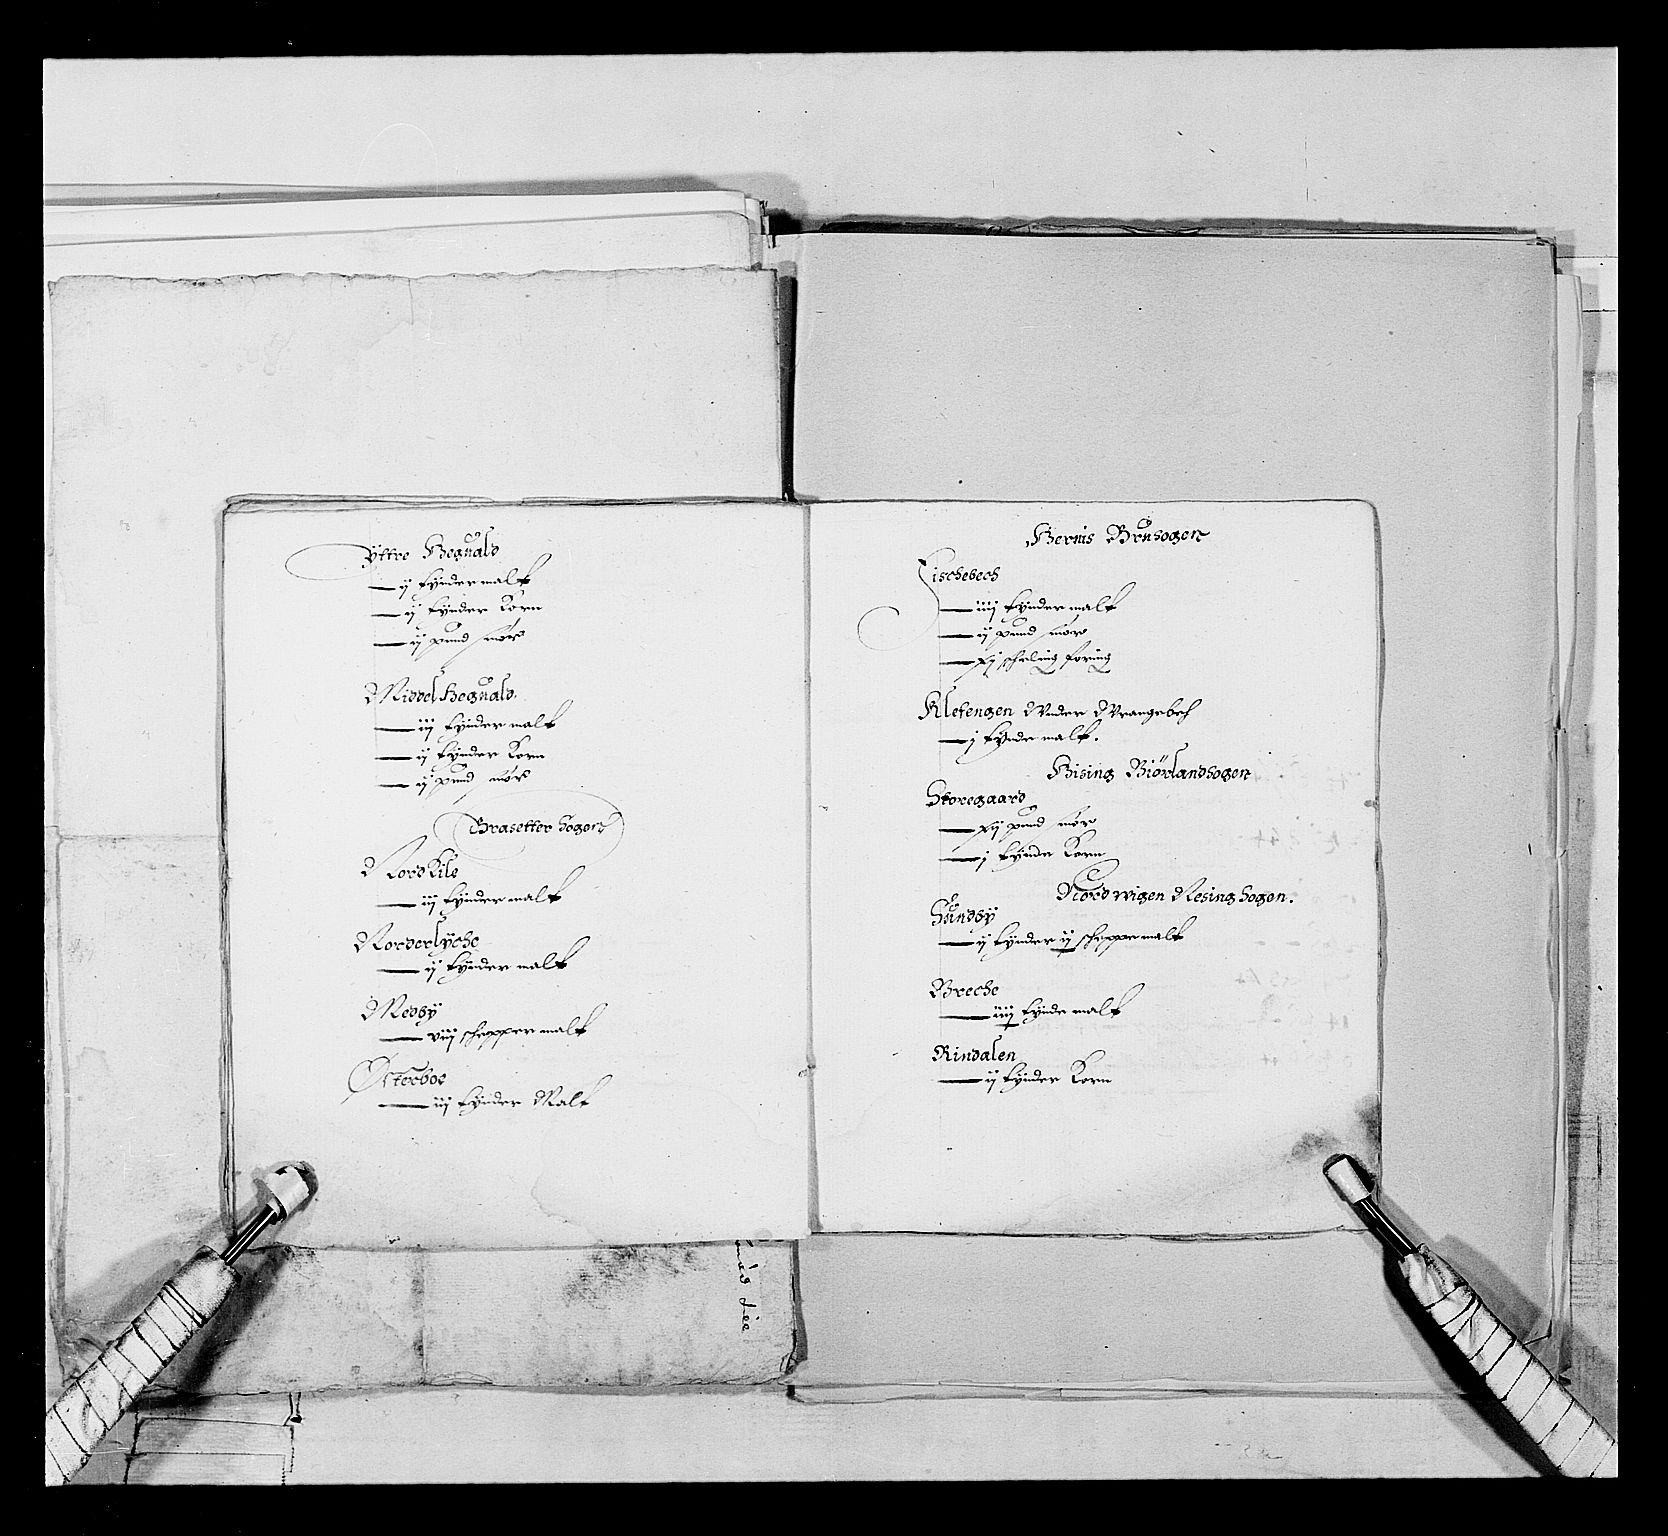 Yttre Hoguals
— ij tÿnder malt
— ij tÿnder Korn
— ij pund smør
Middel Hoguals.
— iij tÿnder malt
— ij tÿnder Korn
— ij pund smør
Brasetter Sogen
Nord Kile
— iij tÿnder malt
Norderlÿche
— ij tÿnder malt
Medbÿ
— viij schepper malt
Østerboe
— iij tÿnder Malt
Bernis Brusogen
Fischebech
— iiij tÿnder malt
— ij pund smør
— xij scheling foring
Kletengen Vnder Vrangebech
— j tÿnde malt.
Hising Biørlandsogen
Storegaard
— xij pund smør
— j tÿnde Korn
Nordwigen Resing Sogen.
Sundbÿ
— ij tÿnder ij scheppe malt
Breche
— iiij tÿnde malt
Rindalen
— ij tÿnder Korn